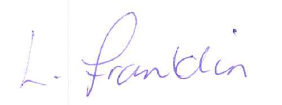 L. Franklin